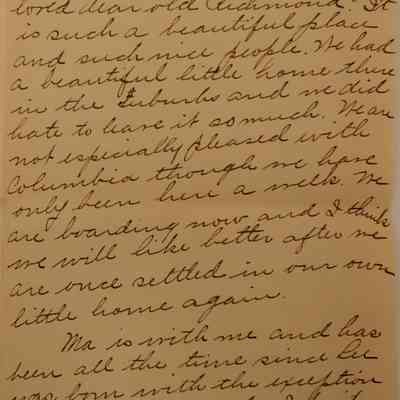 loved dear old Richmond. It
is such a beautiful place
and such nice people. We had
a beautiful little home there
in the Suburbs and we did
hate to leave it so much. We are
not especially pleased with
Columbia though we have
only been here a week. We
are boarding now and I think
we will like better after we
are once settled in our own
little home again.
Ma is with me and has
been all the time since Lee
was born with the exception